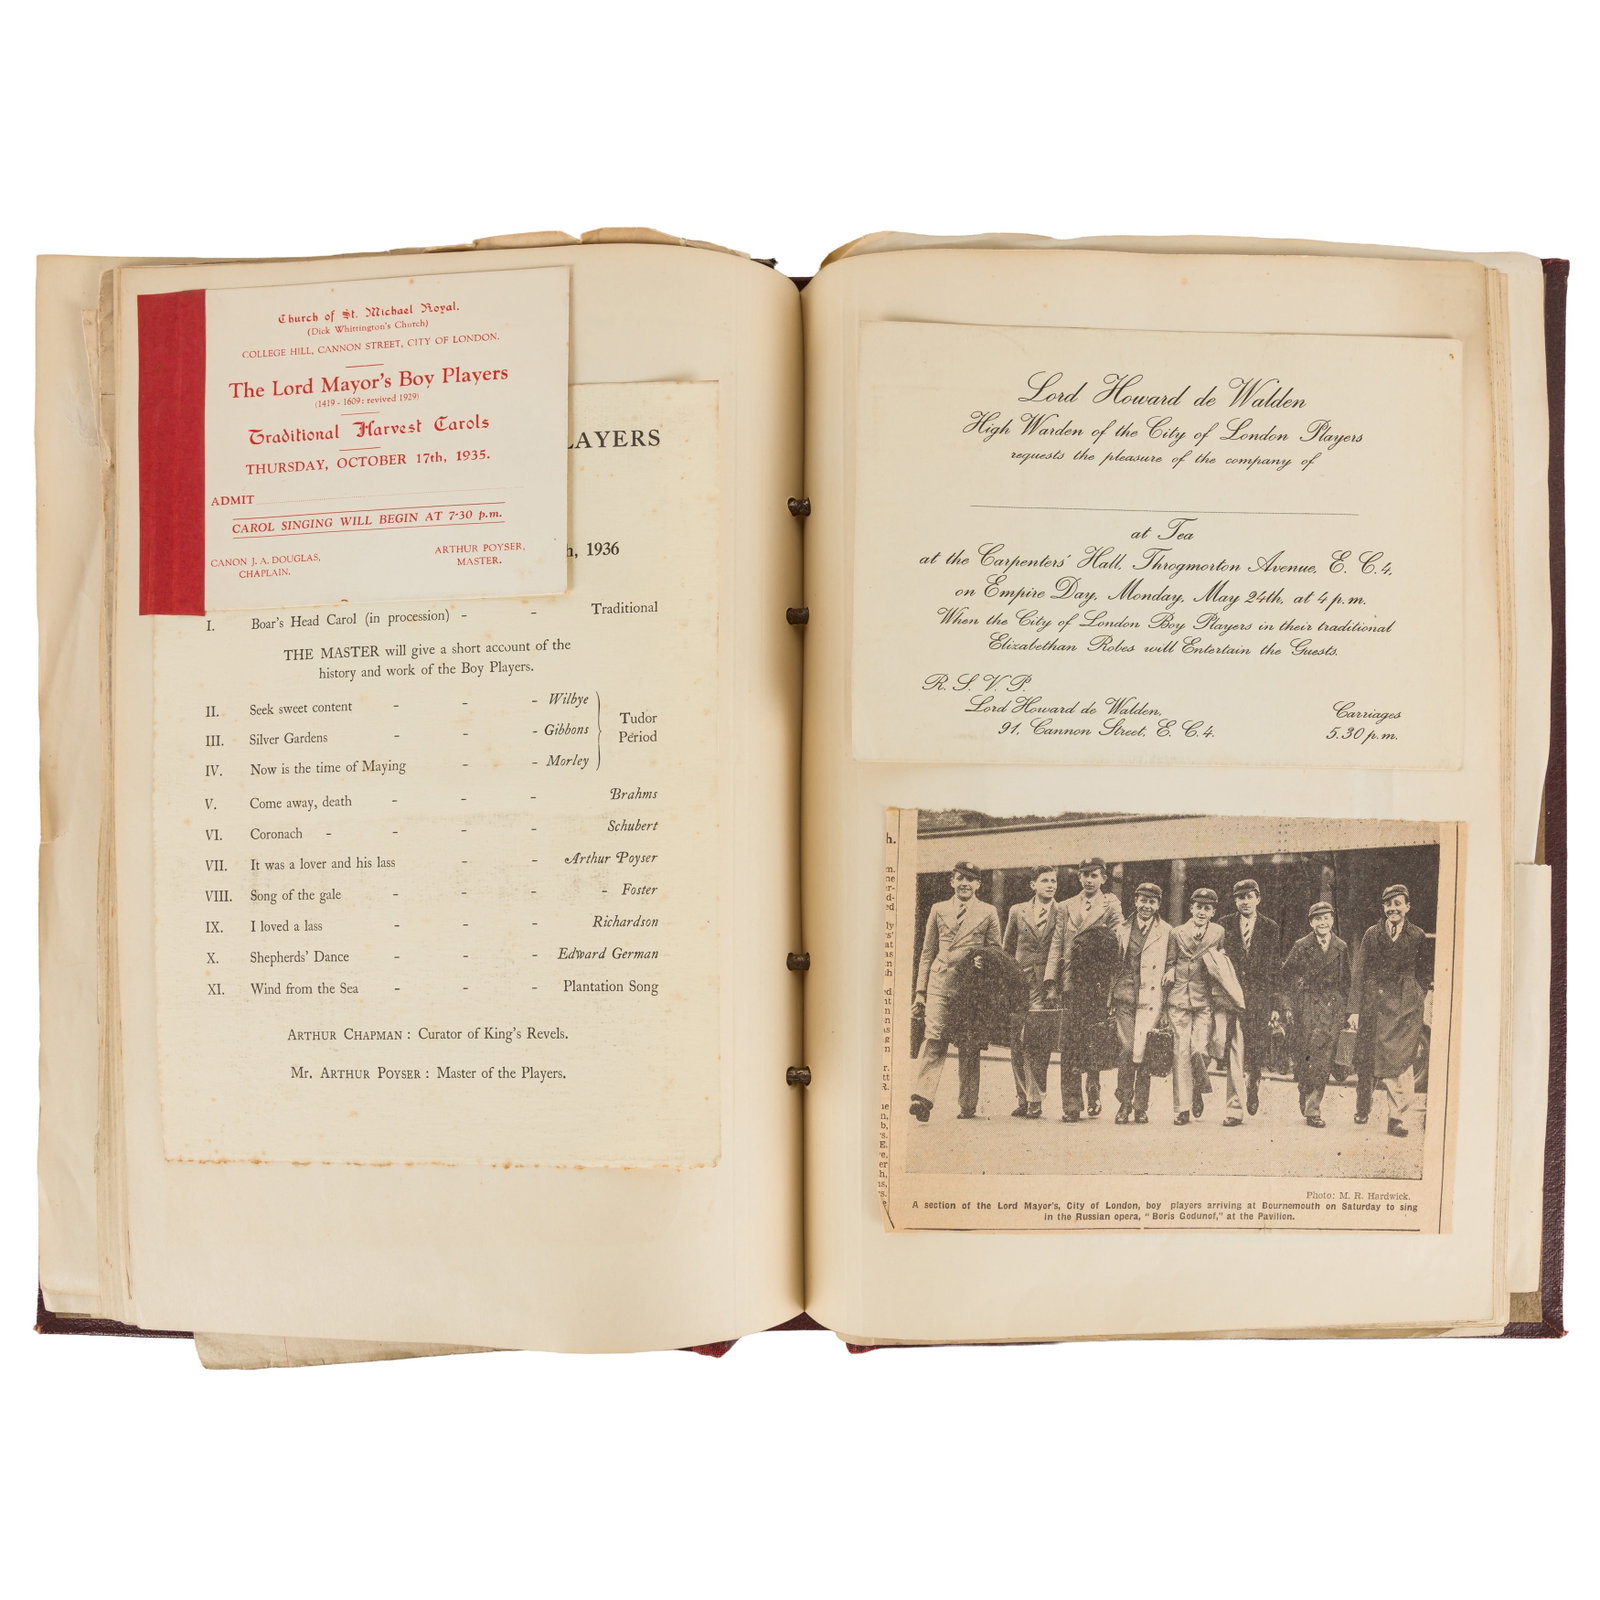 Church of St. Michael Royal.
(Dick Whittington's Church)
COLLEGE HILL, CANNON STREET, CITY OF LONDON.
The Lord Mayor's Boy Players
(1419 - 1609: revived 1929)
Traditional Harvest Carols
THURSDAY, OCTOBER 17th, 1935.
ADMIT
CAROL SINGING WILL BEGIN AT 7-30 p.m.
CANON J. A. DOUGLAS, CHAPLAIN.
ARTHUR POYSER, MASTER.
LAYERS
h, 1936
I. Boar's Head Carol (in procession) - - Traditional
THE MASTER will give a short account of the
history and work of the Boy Players.
II. Seek sweet content - - - Wilbye
III. Silver Gardens - - - Gibbons
IV. Now is the time of Maying - - Morley
Tudor
Period
V. Come away, death - - - Brahms
VI. Coronach - - - - Schubert
VII. It was a lover and his lass - - Arthur Poyser
VIII. Song of the gale - - - - Foster
IX. I loved a lass - - - Richardson
X. Shepherds' Dance - - - Edward German
XI. Wind from the Sea - - - Plantation Song
ARTHUR CHAPMAN : Curator of King's Revels.
Mr. ARTHUR POYSER : Master of the Players.
Lord Howard de Walden
High Warden of the City of London Players
requests the pleasure of the company of
at Tea
at the Carpenters' Hall, Throgmorton Avenue, E. C.4,
on Empire Day, Monday, May 24th, at 4 p.m.
When the City of London Boy Players in their traditional
Elizabethan Robes will Entertain the Guests.
R. S. V. P.
Lord Howard de Walden,
91, Cannon Street, E. C.4.
Carriages
5.30 p.m.
h.
Photo: M. R. Hardwick.
A section of the Lord Mayor's, City of London, boy players arriving at Bournemouth on Saturday to sing
in the Russian opera, "Boris Godunof," at the Pavilion.